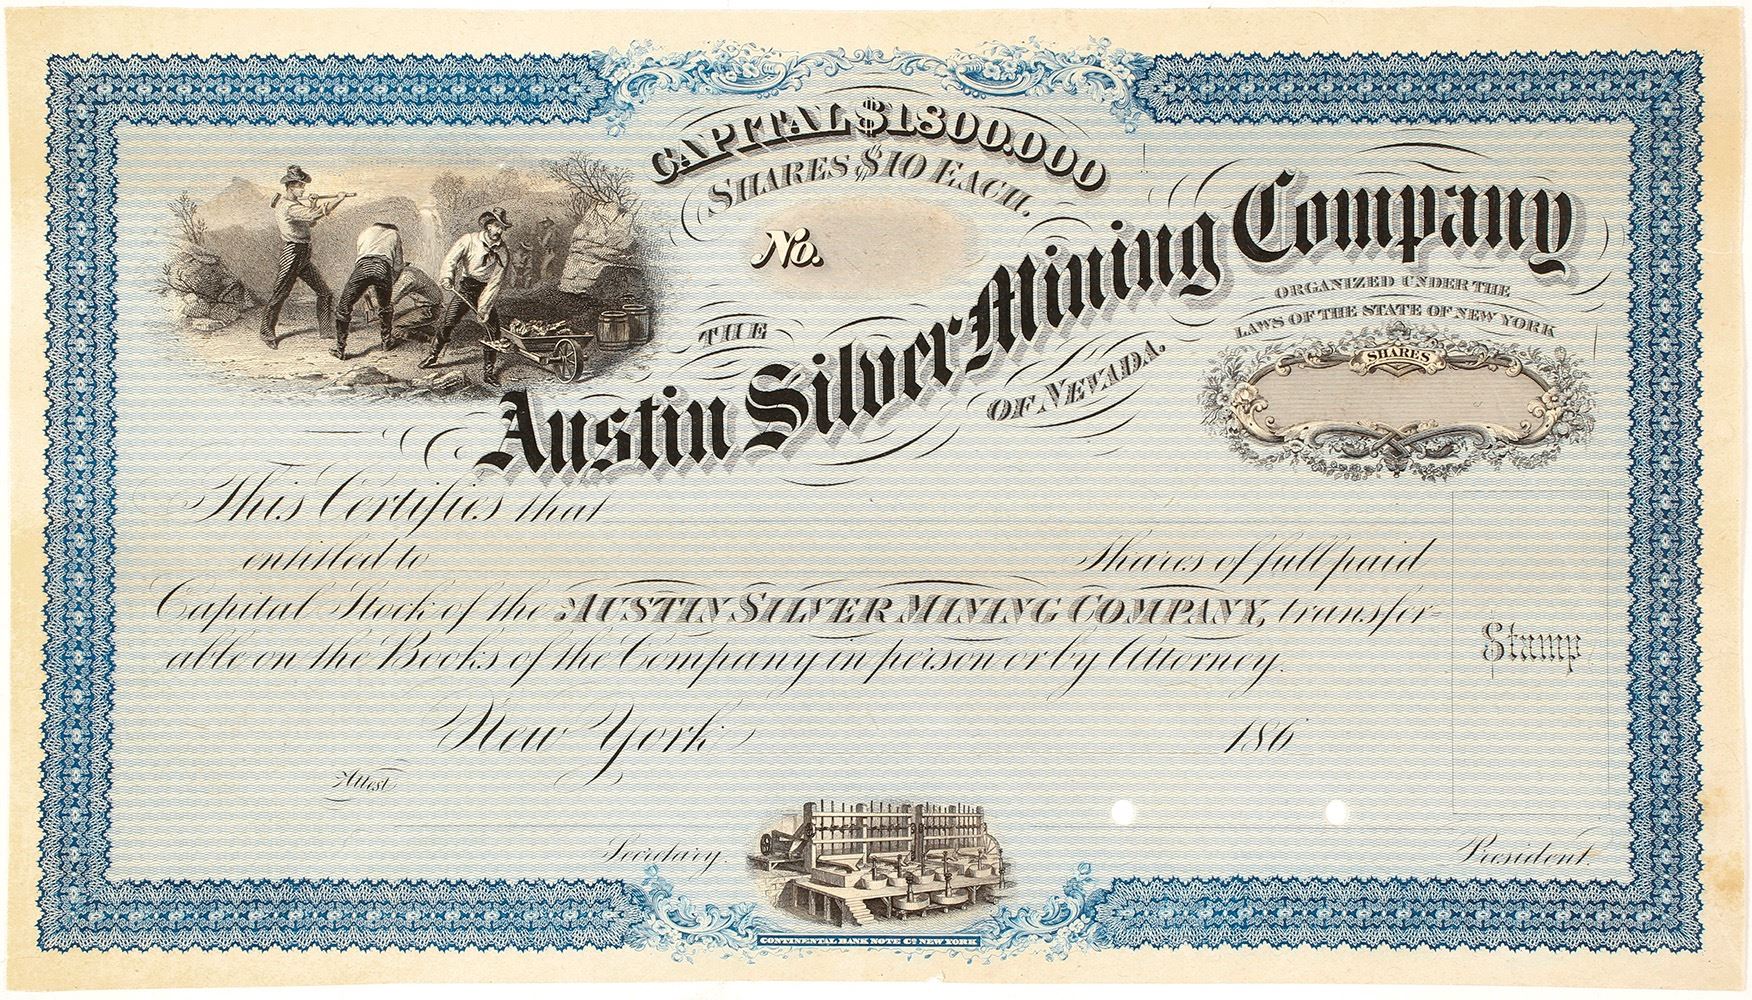 CAPITAL $1.800.000
SHARES $10 EACH.
No.
THE
Austin Silver Mining Company
OF NEVADA.
ORGANIZED UNDER THE
LAWS OF THE STATE OF NEW YORK
SHARES
This Certifies that
entitled to Shares of full paid
Capital Stock of the AUSTIN SILVER MINING COMPANY, transfer-
able on the Books of the Company in person or by Attorney.
Stamp
New York 186
Attest
Secretary. President.
CONTINENTAL BANK NOTE Co. NEW YORK